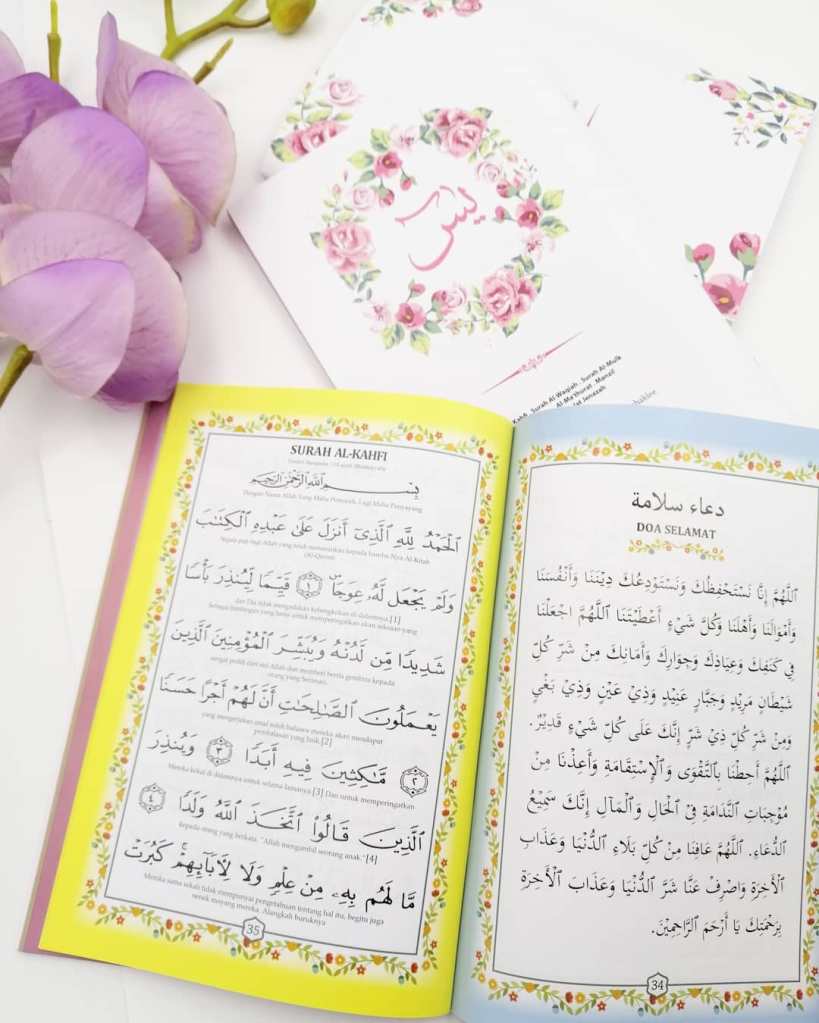 يس
Surah Al-Waqiah . Surah Al-Mulk
Al-Ma'thurat . Manzil
Jenazah
دعاء سلامة
DOA SELAMAT
اَللَّهُمَّ إِنَّا نَسْتَحْفِظُكَ وَنَسْتَوْدِعُكَ دِيْنَنَا وَأَنْفُسَنَا
وَأَمْوَالَنَا وَأَهْلَنَا وَكُلَّ شَيْءٍ أَعْطَيْتَنَا اَللَّهُمَّ اجْعَلْنَا
فِي كَنَفِكَ وَعِيَاذِكَ وَجِوَارِكَ وَأَمَانِكَ مِنْ شَرِّ كُلِّ
شَيْطَانٍ مَرِيْدٍ وَجَبَّارٍ عَنِيْدٍ وَذِيْ عَيْنٍ وَذِيْ بَغْيٍ
وَمِنْ شَرِّ كُلِّ ذِيْ شَرٍّ إِنَّكَ عَلَى كُلِّ شَيْءٍ قَدِيْرٌ.
اَللَّهُمَّ أَحِطْنَا بِالتَّقْوَى وَالْإِسْتِقَامَةِ وَأَعِذْنَا مِنْ
مُوْجِبَاتِ النَّدَامَةِ فِي الْحَالِ وَالْمَآلِ إِنَّكَ سَمِيْعُ
الدُّعَاءِ. اَللَّهُمَّ عَافِنَا مِنْ كُلِّ بَلَاءِ الدُّنْيَا وَعَذَابِ
الْأَخِرَةِ وَاصْرِفْ عَنَّا شَرَّ الدُّنْيَا وَعَذَابَ الْأَخِرَةِ
بِرَحْمَتِكَ يَا أَرْحَمَ الرَّاحِمِيْنَ.
34
SURAH AL-KAHFI
بِسْمِ اللَّهِ الرَّحْمَٰنِ الرَّحِيمِ
Dengan Nama Allah Yang Maha Pemurah, Lagi Maha Penyayang
ٱلْحَمْدُ لِلَّهِ ٱلَّذِىٓ أَنزَلَ عَلَىٰ عَبْدِهِ ٱلْكِتَٰبَ
Segala puji bagi Allah yang telah menurunkan kepada hamba-Nya Al-Kitab
(Al-Quran)
وَلَمْ يَجْعَل لَّهُۥ عِوَجَا ۜ ١ قَيِّمًا لِّيُنذِرَ بَأْسًا
dan Dia tidak mengadakan kebengkokan di dalamnya.[1]
Sebagai bimbingan yang lurus untuk memperingatkan akan seksaan yang
شَدِيدًا مِّن لَّدُنْهُ وَيُبَشِّرَ ٱلْمُؤْمِنِينَ ٱلَّذِينَ
sangat pedih dari sisi Allah dan memberi berita gembira kepada
orang yang beriman,
يَعْمَلُونَ ٱلصَّٰلِحَٰتِ أَنَّ لَهُمْ أَجْرًا حَسَنًا
yang mengerjakan amal soleh bahawa mereka akan mendapat
pembalasan yang baik.[2]
٢ مَّٰكِثِينَ فِيهِ أَبَدًا ٣ وَيُنذِرَ
Mereka kekal di dalamnya untuk selama-lamanya.[3] Dan untuk memperingatkan
ٱلَّذِينَ قَالُوا۟ ٱتَّخَذَ ٱللَّهُ وَلَدًا ٤
kepada orang yang berkata, "Allah mengambil seorang anak."[4]
مَّا لَهُم بِهِۦ مِنْ عِلْمٍ وَلَا لِأَبَآئِهِمْ ۚ كَبُرَتْ
Mereka sama sekali tidak mempunyai pengetahuan tentang hal itu, begitu juga
nenek moyang mereka. Alangkah buruknya
35